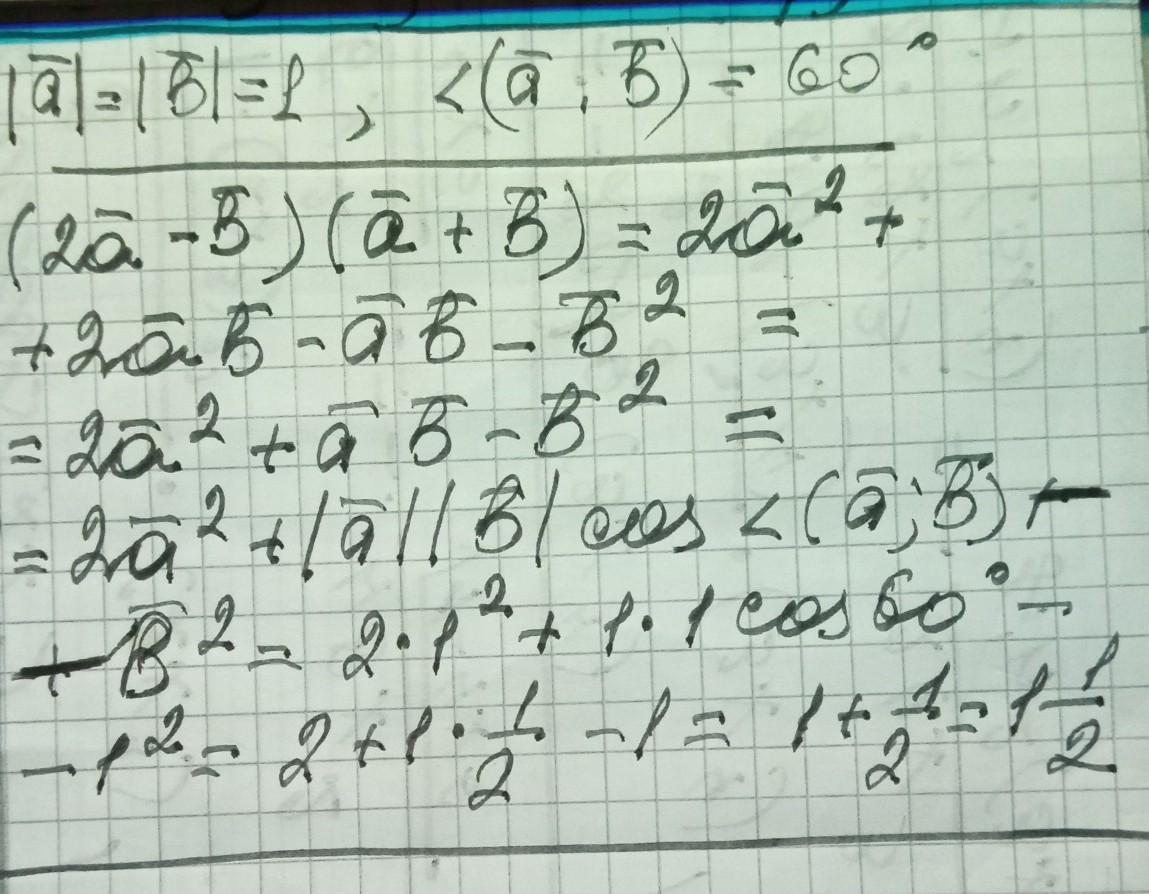 |a̅| = |B̅| = 1 , <(a̅ ; B̅) = 60°
(2a̅ - B̅)(a̅ + B̅) = 2a̅² +
+ 2a̅ B̅ - a̅ B̅ - B̅² =
= 2a̅² + a̅ B̅ - B̅² =
= 2a̅² + |a̅||B̅| cos <(a̅; B̅) -
- B̅² = 2·1² + 1·1 cos 60° -
- 1² = 2 + 1·1/2 - 1 = 1 + 1/2 = 1 1/2